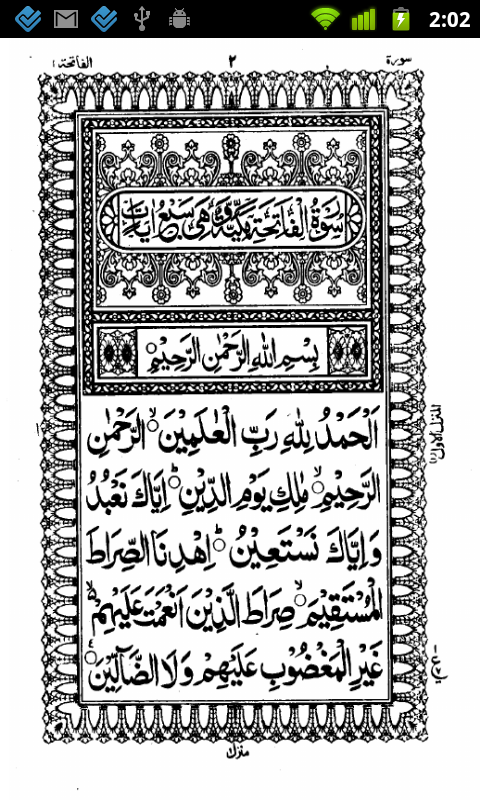 2:02
سورة ٢ الفاتحة ١
سُوْرَةُ الْفَاتِحَةِ مَكِّيَّةٌ وَّهِىَ سَبْعُ اٰيَاتٍ
بِسْمِ اللّٰهِ الرَّحْمٰنِ الرَّحِيْمِ
اَلْحَمْدُ لِلّٰهِ رَبِّ الْعٰلَمِيْنَ ۙ الرَّحْمٰنِ
الرَّحِيْمِ ۙ مٰلِكِ يَوْمِ الدِّيْنِ ؕ اِيَّاكَ نَعْبُدُ
وَاِيَّاكَ نَسْتَعِيْنُ ؕ اِهْدِنَا الصِّرَاطَ
الْمُسْتَقِيْمَ ۙ صِرَاطَ الَّذِيْنَ اَنْعَمْتَ عَلَيْهِمْ ۙ
غَيْرِ الْمَغْضُوْبِ عَلَيْهِمْ وَلَا الضَّآلِّيْنَ
المنزل الاول ١
منزل